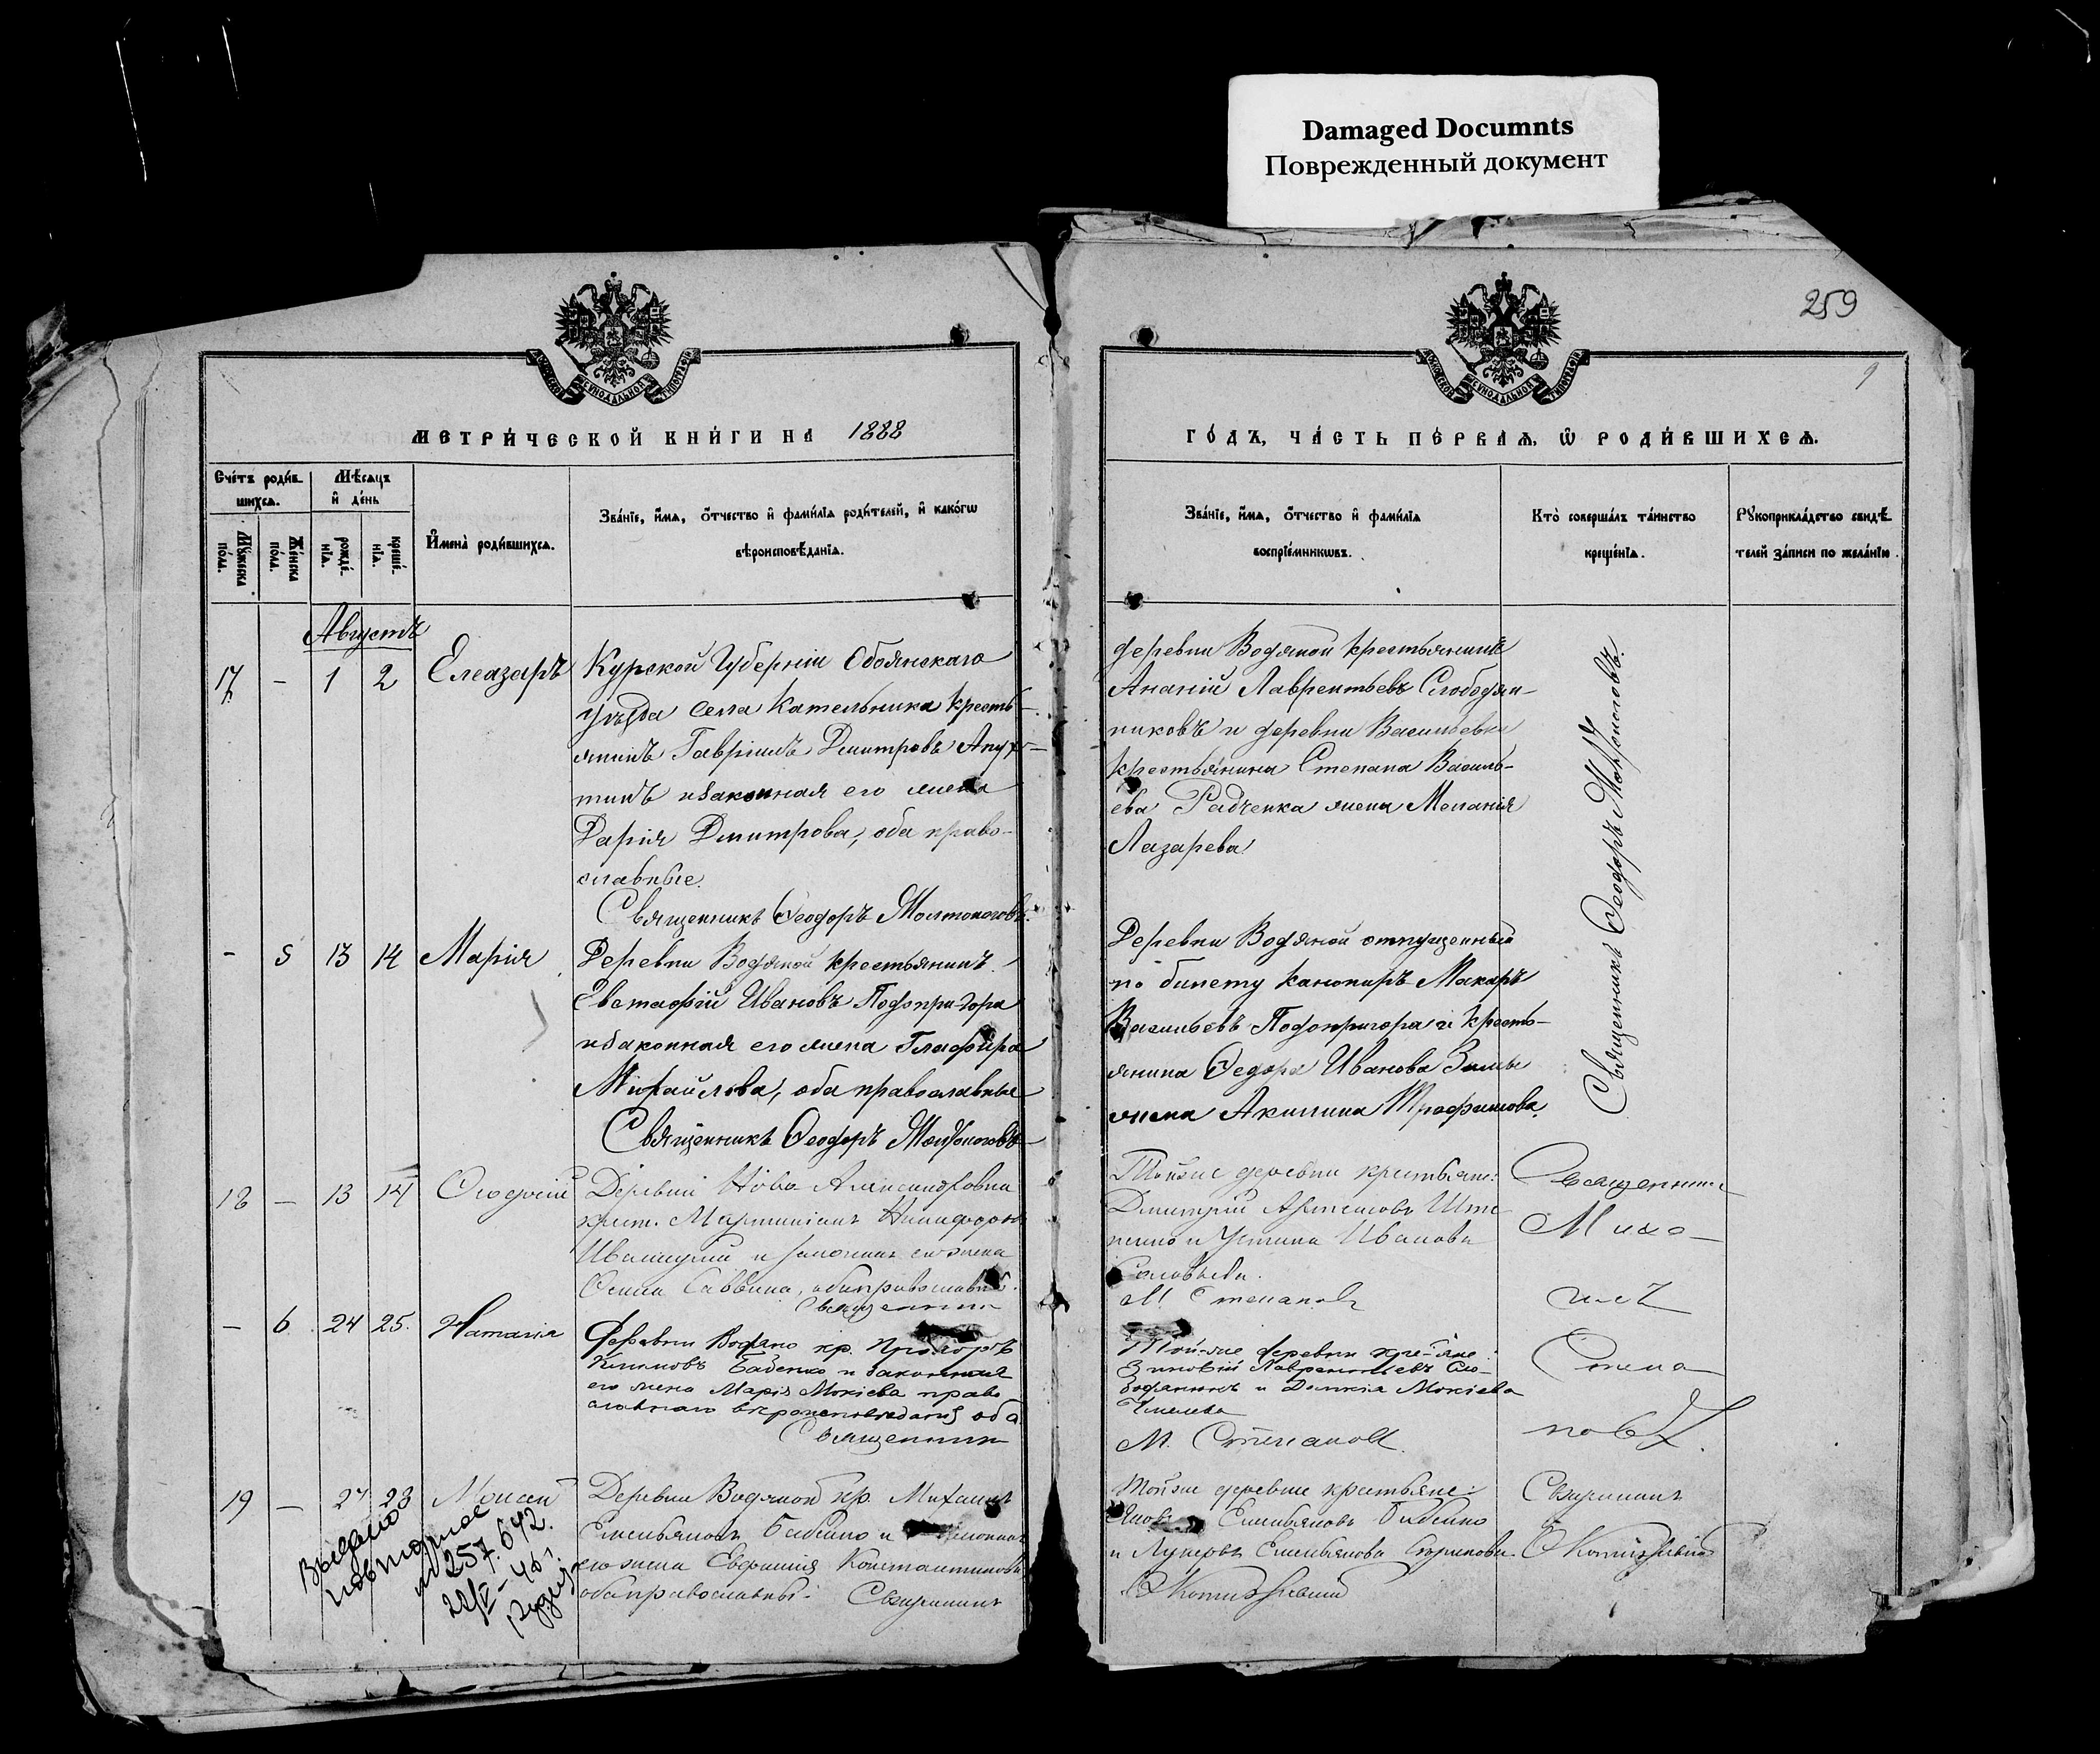 Damaged Documnts
Поврежденный документ
259
9
МЕТРИ́ЧЕСКОЙ КНИ́ГИ НА 1888
ГО́ДЪ, ЧА́СТЬ ПЕ́РВАѦ, Ѿ РОДИ́ВШИХСѦ.
Сче́тъ роди́в-
шихсѧ.
Мѣ́сѧцъ
и҆ де́нь
Мꙋ́жеска
по́ла.
Же́нска
по́ла.
рожде́-
нїѧ.
креще́-
нїѧ.
И҆мена̀ роди́вшихсѧ.
Зва́нїе, и҆́мѧ, ѻ҆́тчество и҆ фами́лїѧ роди́телей, и҆ како́гѡ
вѣроисповѣ́данїѧ.
Зва́нїе, и҆́мѧ, ѻ҆́тчество и҆ фами́лїѧ
воспрїе́мникѡвъ.
Кто̀ соверша́лъ та́инство
креще́нїѧ.
Рꙋкоприкла́дство свидѣ́-
телей за́писи по жела́нїю.
Августъ
17 - 1 2 Елеазаръ
Курской Губерніи Обоянскаго
уѣзда села Котельника кресть-
янинъ Гавріилъ Дмитровъ Апух-
тинъ изаконная его жена
Дарія Дмитрова, оба право-
славные.
Священникъ Ѳеодоръ
деревни Водяной крестьянинъ
Ананій Лаврентьевъ Слободян-
никовъ и деревни Васильевки
крестьянина Степана Василь-
ева Радченка жена Меланія
Лазарева
Священникъ Ѳеодоръ
- 5 13 14 Марія
Деревни Водяной крестьянинъ
Евстафій Ивановъ Подопригора
изаконная его жена Глафира
Михайлова, оба православные
Священникъ Ѳеодоръ
Деревни Водяной отпущенный
по билету канониръ Макаръ
Васильевъ Подопригора и кресть-
янина Ѳедора Иванова Зимы
жена Акилина Трофимова.
18 - 13 14 Ѳеодосій
Деревни Ново Александровки
крест. Мартиніанъ Никифоровъ
и законная его жена
Саввина, оба православны
Священникъ
Той же деревни крестьяне:
Дмитрій
и Устина Иванова
Соловьева.
М. Степановъ
Священникъ
Миха-
илъ
Степа-
новъ.
- 6 24 25. Наталія
Деревни Водяно кр. Прохоръ
Климовъ Бабенко и законная
его жена Марія Мокіева право
славнаго вѣроисповѣданія оба
Священник
Той-же деревни кре-тьяне:
Зиновій Лаврентьевъ Сло-
бодяникъ и Домнія Мокіева
М. Степановъ.
19 - 27 28 Моисей
Деревни Водяной кр. Михаилъ
Емельяновъ Бабенко и законная
его жена Евфимія Константинова
оба православны. Священникъ
Той же деревни крестьяне:
Яковъ Емельяновъ Бабенко
и Емельянова
Священникъ
Выдано
повторное
№ 257.642.